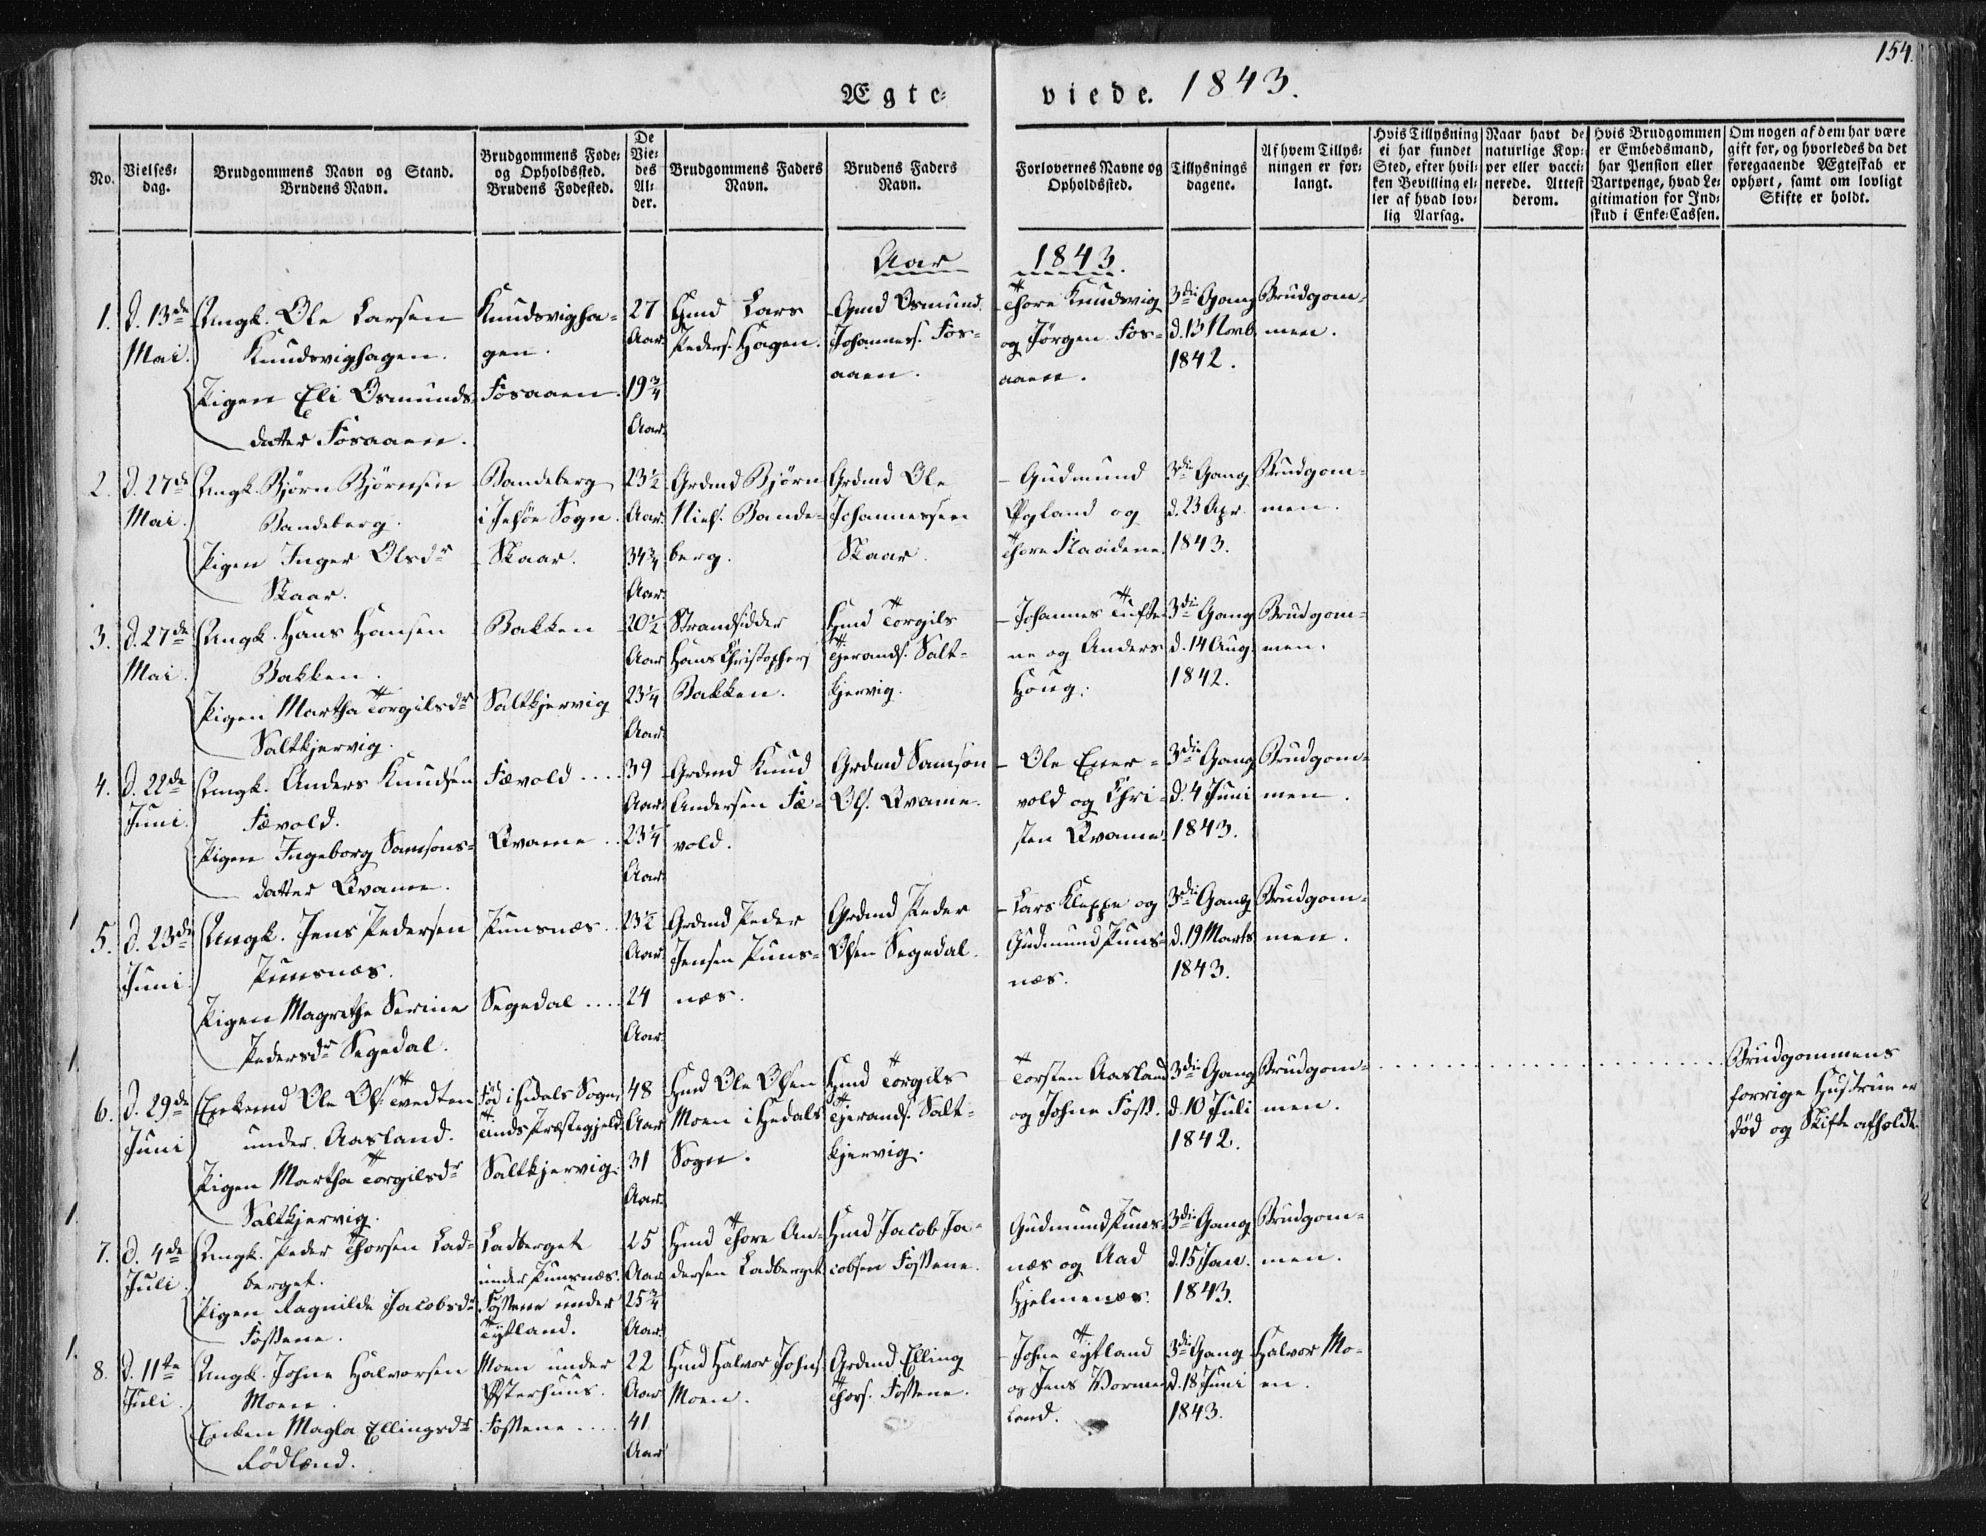 154.
Ægte- viede. 1843.
No.
Vielses-
dag.
Brudgommens Navn og Stand.
Brudens Navn.
Brudgommens Føde-
og Opholdssted.
Brudens Fødested.
De
Vie-
des
Al-
der.
Brudgommens Faders
Navn.
Brudens Faders
Navn.
Forlovernes Navne og
Opholdssted.
Tillysnings
dagene.
Af hvem Tillys-
ningen er for-
langt.
Hvis Tillysning
ei har fundet
Sted, efter hvil-
ken Bevilling el-
ler af hvad lov-
lig Aarsag.
Naar havt de
naturlige Kop-
per eller vacci-
nerede. Attest
derom.
Hvis Brudgommen
er Embedsmand,
har Pension eller
Vartpenge, hvad Le-
gitimation for Ind-
skud i Enke-Cassen.
Om nogen af dem har være
gift før, og hvorledes da det
foregaaende Ægteskab er
ophørt, samt om lovligt
Skifte er holdt.
Aar 1843.
1.
d. 13de
Mai.
Ungk. Ole Larsen
Knudsvighagen.
Pigen Eli Osmunds-
datter Fosaaen.
Knudsvigha-
gen.
Fosaaen.
27
Aar.
19 3/4
Aar.
Hmd Lars
Peders. Hagen.
Gmd Osmund
Johannes. Fos-
aaen.
Thore Knudsvig
og Jørgen Fos-
aaen.
3die Gang
d. 13 Novb.
1842.
Brudgom-
men.
2.
d. 27de
Mai.
Ungk. Bjørn Bjørnsen
Bandeberg.
Pigen Inger Olsdr
Skaar.
Bandeberg
i Jelsøe Sogn.
Skaar.
23 1/2
Aar.
34 3/4
Aar.
Grdmd Bjørn
Niels. Bande-
berg.
Grdmd Ole
Johannessen
Skaar.
Gudmund
og
Thore Flaadene.
3die Gang
d. 23 Apr.
1843.
Brudgom-
men.
3.
d. 27de
Mai.
Ungk. Hans Hansen
Bakken.
Pigen Martha Torgilsdr
Saltkjervig.
Bakken
Saltkjervig
20 1/2
Aar
23 1/4
Aar.
Strandsidder
Hans Christophers
Bakken.
Hmd Torgils
Tjerands. Salt-
kjervig.
Johannes Tufte-
ne og Anders
Houg.
3die Gang
d. 14 Aug.
1842.
Brudgom-
men.
4.
d. 22de
Juni.
Ungk. Anders Knudsen
Fævold.
Pigen Ingeborg Samsons-
datter Qvame.
Fævold ....
Qvame ..
39
Aar.
23 1/4
Aar.
Grdmd Knud
Andersen Fæ-
vold.
Grdmd Samson
Ols. Qvame.
Ole Ener-
vold og Chri-
sten Qvame.
3die Gang
d. 4 Juni
1843.
Brudgom-
men.
5.
d. 23de
Juni
Ungk. Jens Pedersen
Punsnæs.
Pigen Magrethe Serine
Pedersdr Segedal.
Punsnæs.
Segedal ....
23 1/2
Aar.
24
Aar.
Grdmd Peder
Jensen Puns-
næs.
Grdmd Peder
Olsen Segedal.
Lars Kleppe og
Gudmund Puns-
næs.
3die Gang
d. 19 Marts
1843.
Brudgom-
men.
6.
d. 29de
Juni
Enkemd Ole Ols. Tvedten
under Aasland.
Pigen Martha Torgilsdr
Saltkjervig.
Fød i Hedals Sogn,
Tinds Præstegjeld.
Saltkjervig.
48
Aar
31
Aar.
Hmd Ole Olsen
Moen i Hedals
Sogn.
Hmd Torgils
Tjerands. Salt-
kjervig.
Torsten Aasland
og Johne Foss.
3die Gang
d. 10 Juli
1842.
Brudgom-
men.
Brudgommens
forrige Hustrue er
død og Skifte afholdt.
7.
d. 4de
Juli.
Ungk. Peder Thorsen Lad-
berget.
Pigen Ragnilde Jacobsdr
Fossene.
Ladberget
under Punsnæs.
Fossene under
Tytland.
25
Aar
25 3/4
Aar.
Hmd Thore An-
dersen Ladberget
Hmd Jacob Ja-
cobsen Fossene.
Gudmund Puns-
næs og Aad
Hjelmenæs.
3die Gang
d. 15 Jan.
1843.
Brudgom-
men.
8.
d. 11te
Juli.
Ungk. Johne Halvorsen
Moen.
Enken Magla Ellingsdr
Rødland.
Moen under
Østerhuus.
Fossene ....
22
Aar
41
Aar
Hmd Halvor Johns.
Moen.
Grdmd Elling
Thors. Fossene.
Johne Tytland
og Jens Worme-
land.
3die Gang
d. 18 Juni
1843.
Halvor Mo-
en.